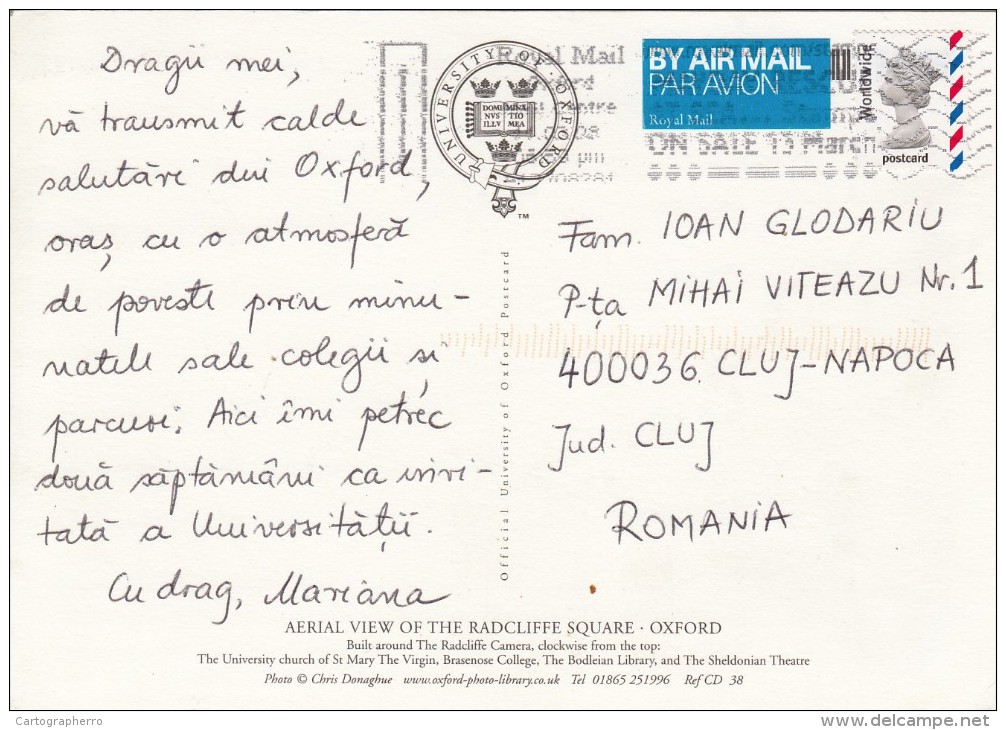 Dragii mei,
vă transmit calde
salutări din Oxford,
oraș cu o atmosferă
de poveste prin minu-
natele sale colegii și
parcuri. Aici îmi petrec
două săptămâni ca invi-
tată a Universității.
Cu drag, Mariana
Royal Mail
UNIVERSITY OF OXFORD
DOMI MINA
NVS TIO
ILLV MEA
TM
BY AIR MAIL
PAR AVION
Royal Mail
Worldwide
postcard
ON SALE 13 March
Fam. IOAN GLODARIU
P-ța MIHAI VITEAZU Nr. 1
400036 CLUJ-NAPOCA
Jud. CLUJ
ROMANIA
Official University of Oxford Postcard
AERIAL VIEW OF THE RADCLIFFE SQUARE · OXFORD
Built around The Radcliffe Camera, clockwise from the top:
The University church of St Mary The Virgin, Brasenose College, The Bodleian Library, and The Sheldonian Theatre
Photo © Chris Donaghue www.oxford-photo-library.co.uk Tel 01865 251996 Ref CD 38
Cartographerro
www.delcampe.net